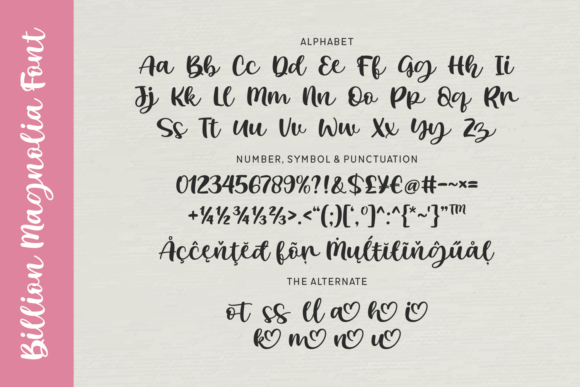 Billion Magnolia Font
ALPHABET
Aa Bb Cc Dd Ee Ff Gg Hh Ii
Jj Kk Ll Mm Nn Oo Pp Qq Rr
Ss Tt Uu Vv Ww Xx Yy Zz
NUMBER, SYMBOL & PUNCTUATION
0123456789%?!&$£¥€@#-~×=
+¼½¾⅓⅔>.<“(;)[‘,º]^:^{*~'}”™
Åçčęňţĕđ fõŗ Ṁųĺŧĕľĩńĝűåļ
THE ALTERNATE
ot ss ll a♡ h♡ i♡
k♡ m♡ n♡ u♡